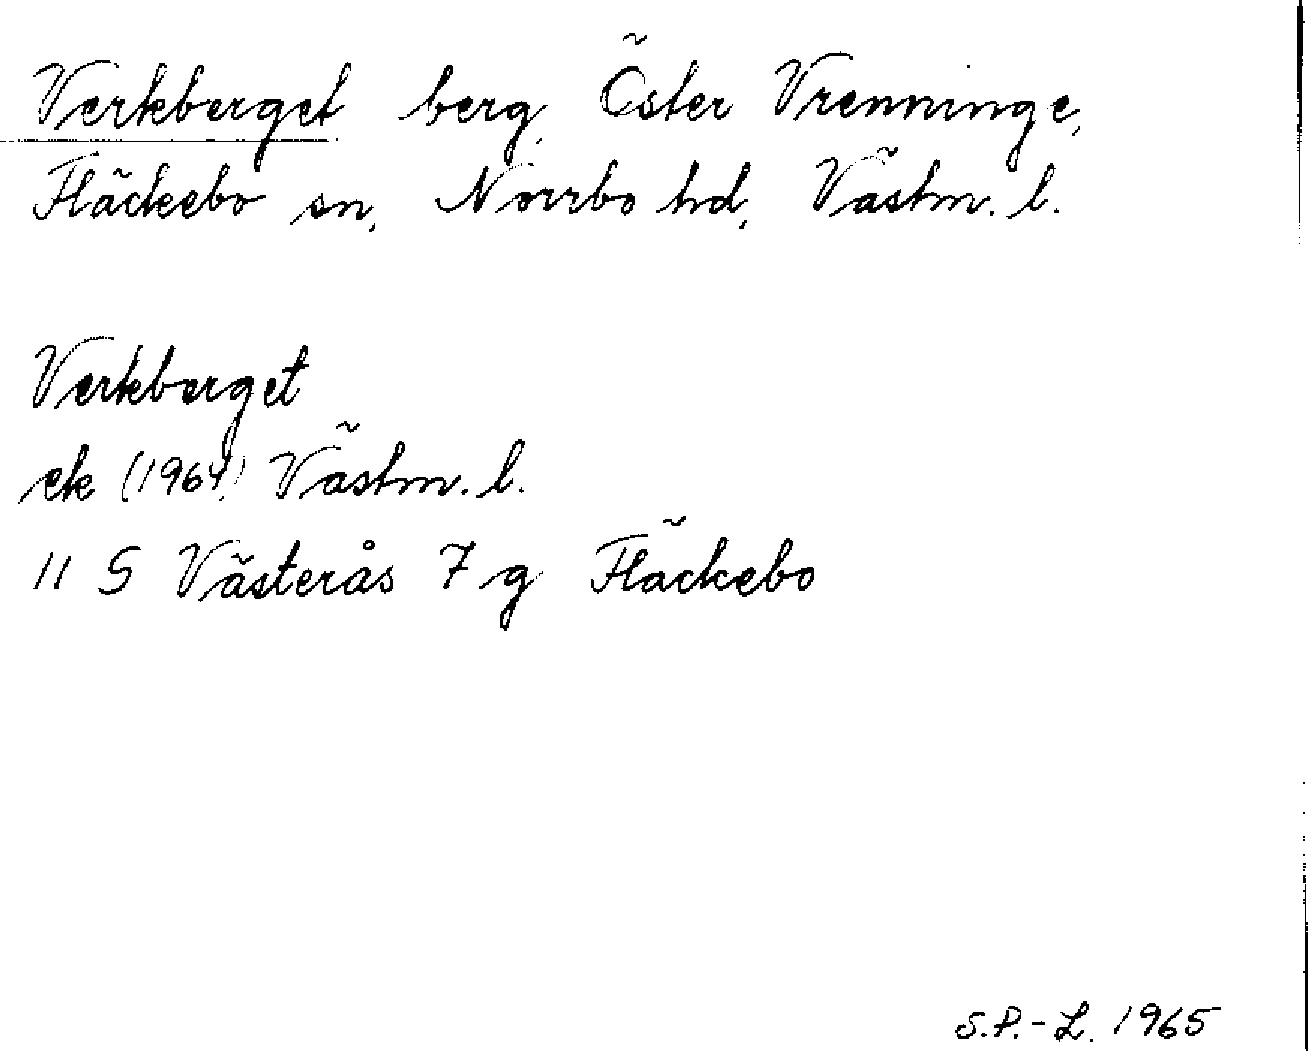 Verkberget berg, Öster Vrenninge,
Fläckebo sn, Norrbo hd, Västm. l.
Verkberget
ek (1964) Västm. l.
11 G Västerås 7 g Fläckebo
S.P.-L. 1965